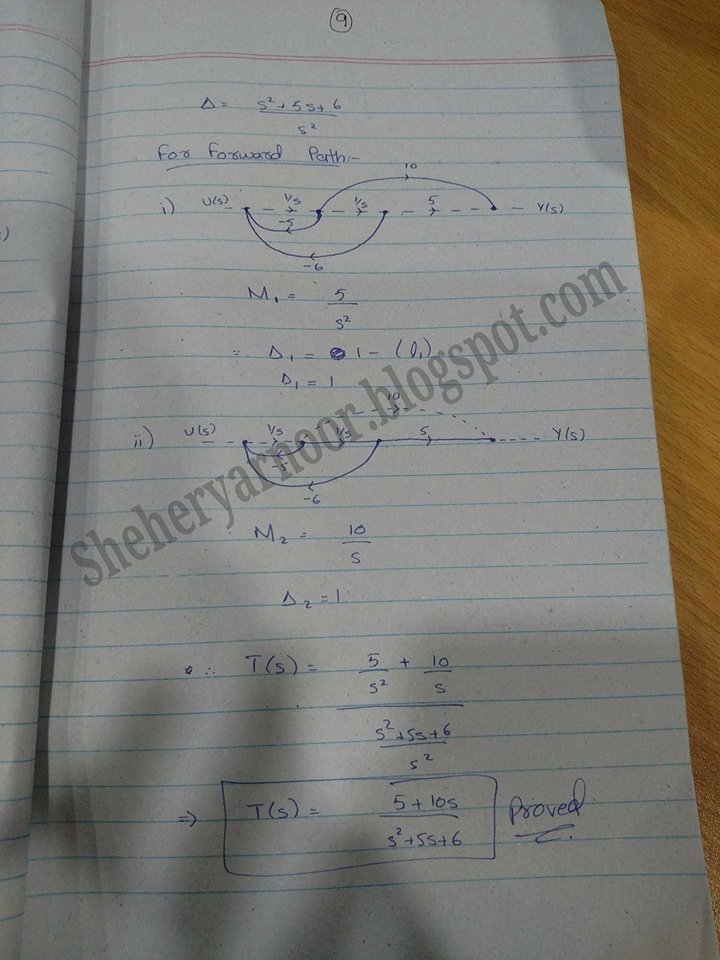 9
Δ = s²+5s+6 / s²
For Forward Path:-
10
i) U(s) 1/s 1/s 5 Y(s)
-5
-6
M₁ = 5 / s²
∵ Δ₁ = 1 - (l₁)
Δ₁ = 1
10
ii) U(s) 1/s 1/s 5 Y(s)
-5
-6
M₂ = 10 / s
Δ₂ = 1
∴ T(s) = 5/s² + 10/s
s²+5s+6 / s²
⇒ T(s) = 5+10s / s²+5s+6 Proved
Sheheryarnoor.blogspot.com